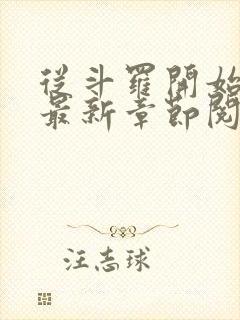 從斗羅開始
最新章節閱
汪志球